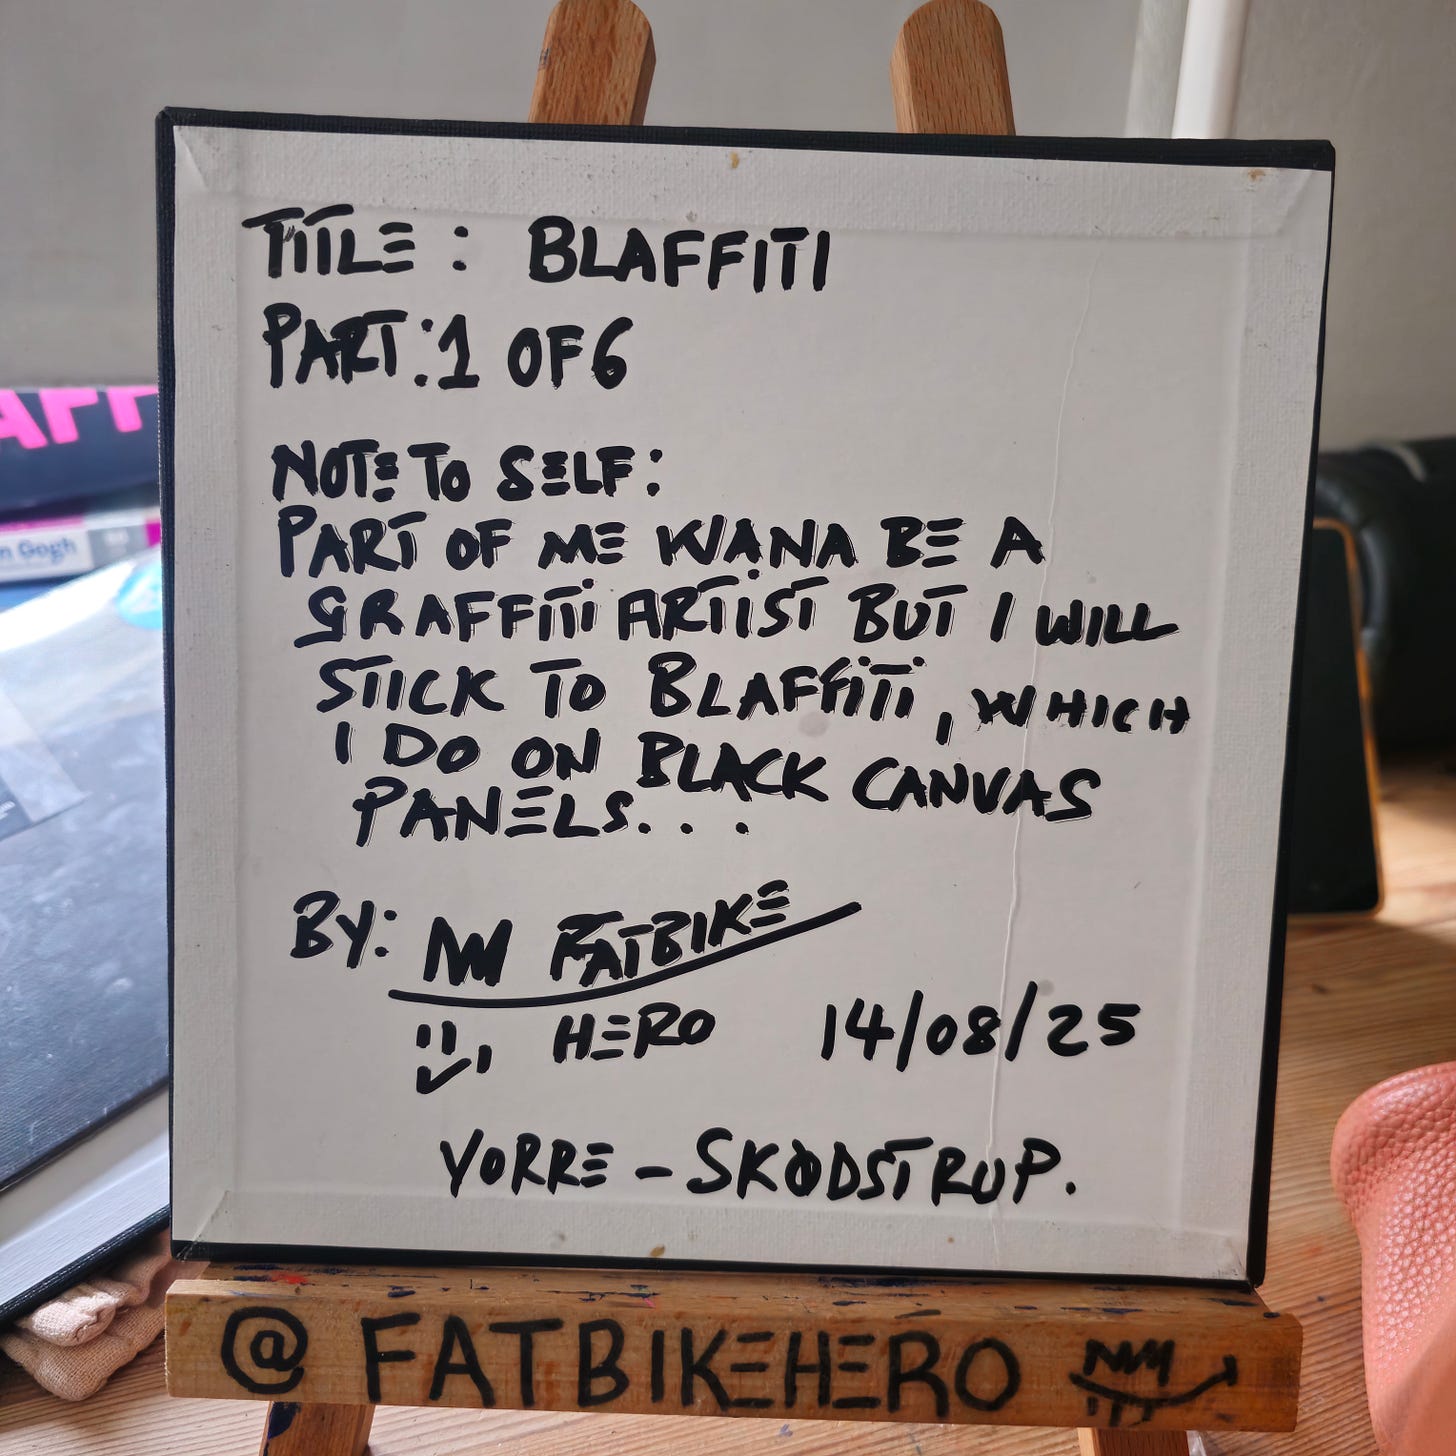 TITLE: BLAFFITI
PART: 1 OF 6
NOTE TO SELF:
PART OF ME WANA BE A
GRAFFITI ARTIST BUT I WILL
STICK TO BLAFFITI, WHICH
I DO ON BLACK CANVAS
PANELS...
BY: FATBIKE
HERO 14/08/25
YORRE - SKØDSTRUP.
@FATBIKEHERO
AFF
n Gogh